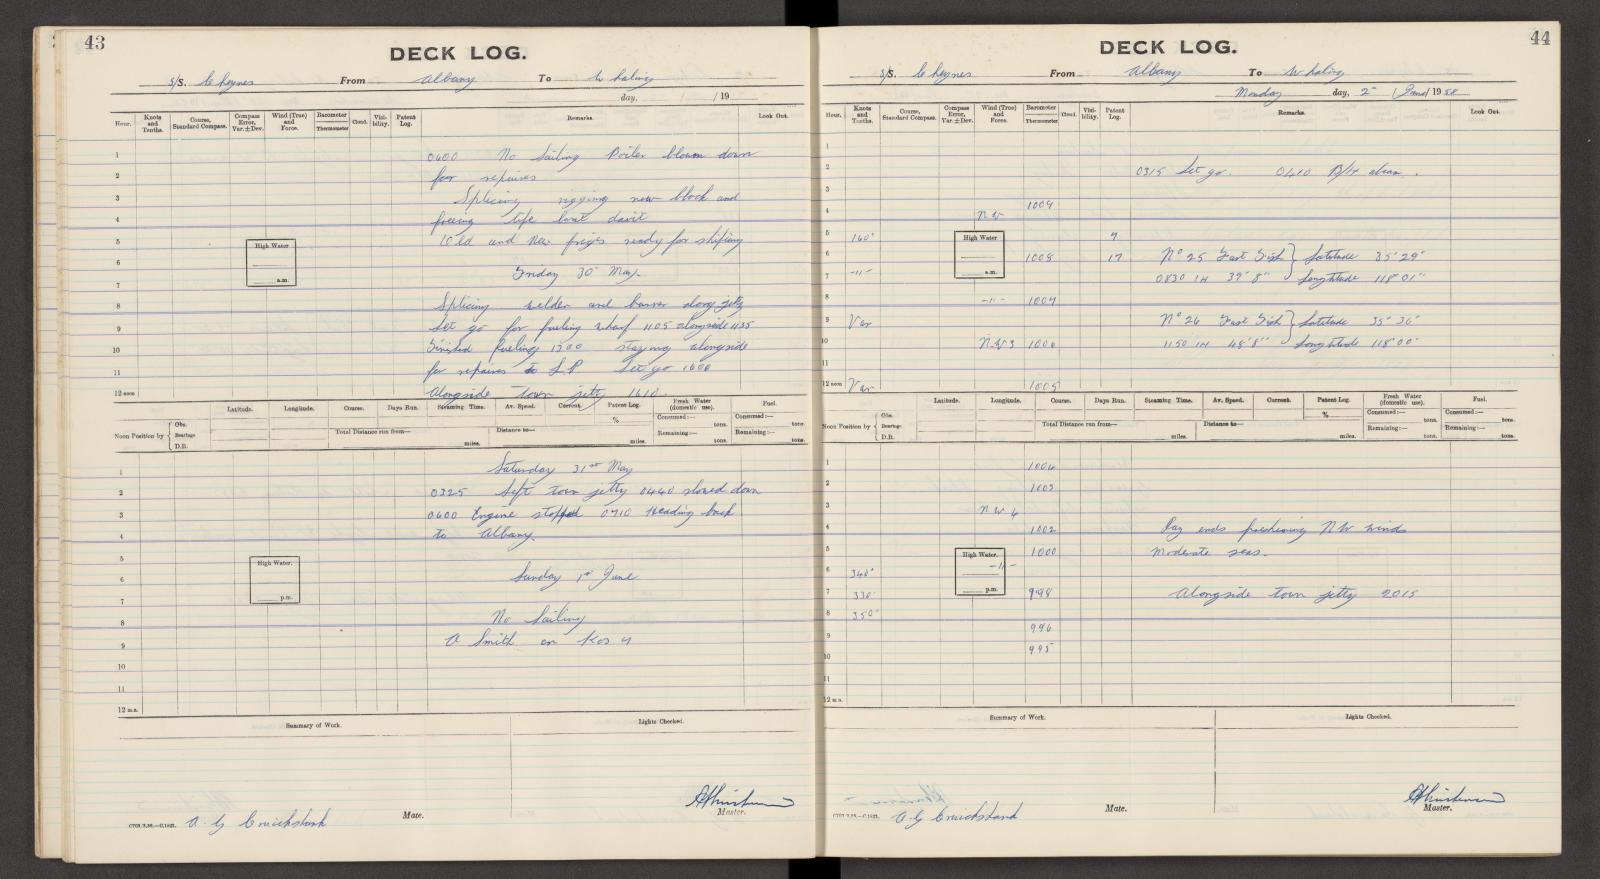 43
DECK LOG.
S/S. Cheynes From Albany To Whaling
day, / 19
Hour. Knots and Tenths. Course, Standard Compass. Compass Error, Var. ± Dev. Wind (True) and Force. Barometer Thermometer Cloud. Visibility. Patent Log. Remarks. Look Out.
1 0600 No Sailing Boiler blown down
2 for repaires
3 Splicing rigging new block and
4 freeing life boat davit
5 High Water Old and New ready for shifting
6 Friday 30 May.
7 a.m.
8 Splicing along jetty
9 Let go for fueling wharf 1105 alongside 1135
10 Finished fueling 1300 staying alongside
11 for repaires to L.P Let go 1600
12 noon Alongside town jetty 1610.
Latitude. Longitude. Course. Days Run. Steaming Time. Av. Speed. Current. Patent Log. Fresh Water (domestic use). Fuel.
Noon Position by Obs. Bearings D.R. % Consumed:— tons. Consumed:— tons.
Total Distance run from— miles. Distance to— miles. Remaining:— tons. Remaining:— tons.
1 Saturday 31st May
2 0325 Left town jetty 0440 slowed down
3 0600 Engine stopped 0710 Heading back
4 to Albany.
5 High Water.
6 Sunday 1st June
7 p.m.
8 No Sailing
9 A Smith on Kos 4
10
11
12 m.n.
Summary of Work. Lights Checked.
A. G Cruickshank Mate. Master.
44
DECK LOG.
S/S. Cheynes From Albany To Whaling
Monday day, 2 / June / 19 58
Hour. Knots and Tenths. Course, Standard Compass. Compass Error, Var. ± Dev. Wind (True) and Force. Barometer Thermometer Cloud. Visibility. Patent Log. Remarks. Look Out.
1
2 0315 Let go. 0410 B/H abeam.
3
4 NW 1009
5 160° High Water 7
6 1008 17 No 25 Fast Fish } Latitude 35°29"
7 -"- a.m. 0830 1H 39'8" } Longtitude 118°01"
8 -"- 1007
9 Var No 26 Fast Fish } Latitude 35°36"
10 N.W 3 1006 1150 1H 48'8" } Longtitude 118°00"
11
12 noon Var 1005
Latitude. Longitude. Course. Days Run. Steaming Time. Av. Speed. Current. Patent Log. Fresh Water (domestic use). Fuel.
Noon Position by Obs. Bearings D.R. % Consumed:— tons. Consumed:— tons.
Total Distance run from— miles. Distance to— miles. Remaining:— tons. Remaining:— tons.
1 1004
2 1003
3 NW 6
4 1002 Day ends freshening NW winds
5 High Water. 1000 Moderate seas.
6 340° -"-
7 330° p.m. 998 Alongside town jetty 2015
8 350°
9 996
10 995
11
12 m.n.
Summary of Work. Lights Checked.
A. G Cruickshank Mate. Master.